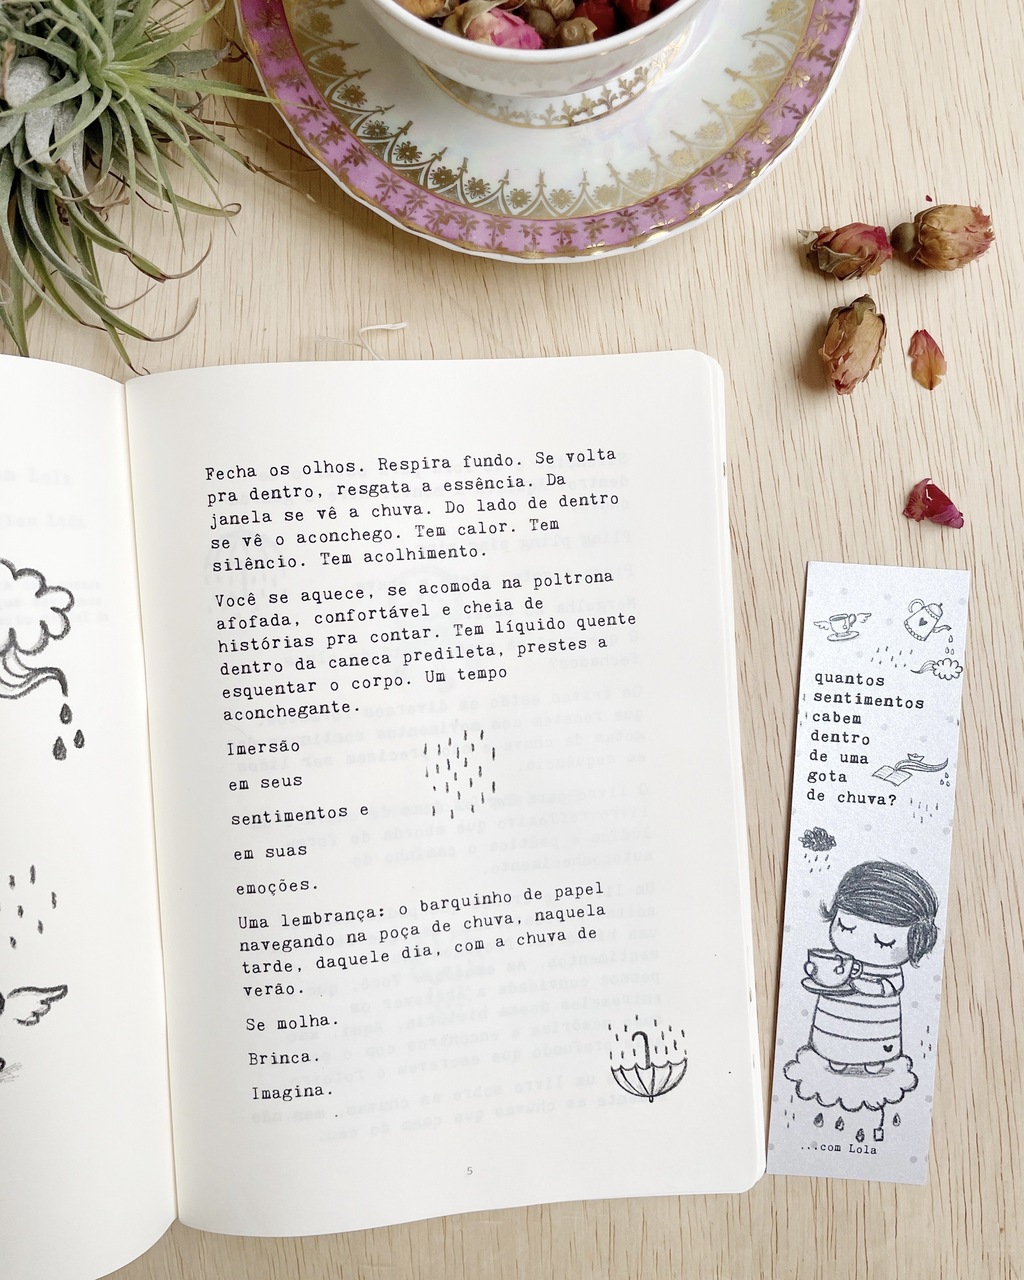 Fecha os olhos. Respira fundo. Se volta
pra dentro, resgata a essência. Da
janela se vê a chuva. Do lado de dentro
se vê o aconchego. Tem calor. Tem
silêncio. Tem acolhimento.
Você se aquece, se acomoda na poltrona
afofada, confortável e cheia de
histórias pra contar. Tem líquido quente
dentro da caneca predileta, prestes a
esquentar o corpo. Um tempo
aconchegante.
Imersão
em seus
sentimentos e
em suas
emoções.
Uma lembrança: o barquinho de papel
navegando na poça de chuva, naquela
tarde, daquele dia, com a chuva de
verão.
Se molha.
Brinca.
Imagina.
5
quantos
sentimentos
cabem
dentro
de uma
gota
de chuva?
...com Lola